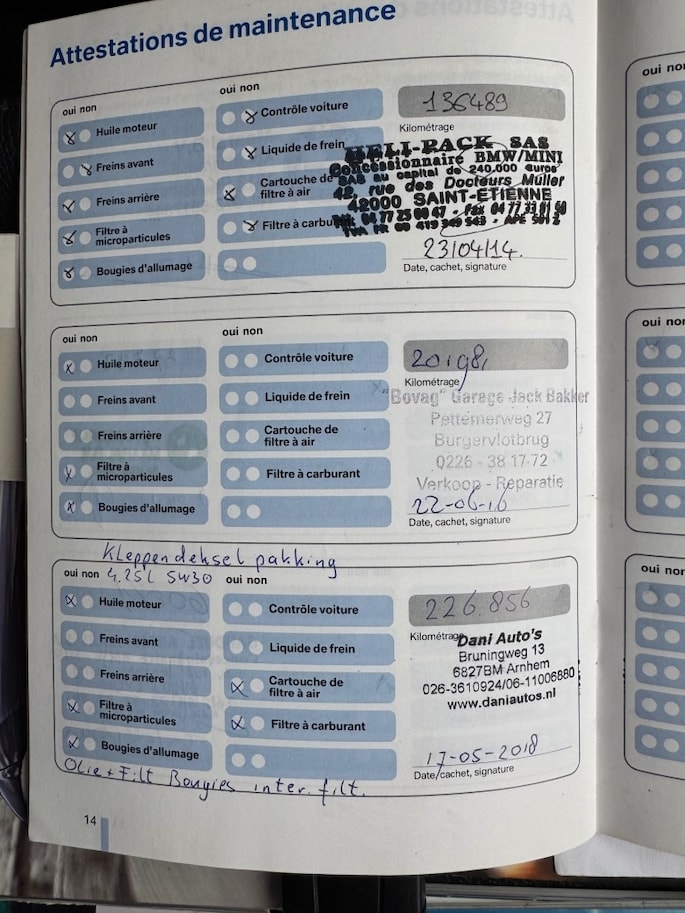 Attestations de maintenance
oui non
oui non
Huile moteur
Contrôle voiture
136489
Kilométrage
Freins avant
Liquide de frein
HELI-PACK SAS
Concessionnaire BMW/MINI
SAS au capital de 240.000 euros
42, rue des Docteurs Müller
42000 SAINT-ETIENNE
Freins arrière
Cartouche de
filtre à air
Filtre à
microparticules
Filtre à carbu
Bougies d'allumage
23/04/14.
Date, cachet, signature
oui non
oui non
Huile moteur
Contrôle voiture
Kilométrage
Freins avant
Liquide de frein
"Bovag" Garage Jack Bakker
Pettemerweg 27
Burgervlotbrug
0226 - 38 17 72
Verkoop - Reparatie
Freins arrière
Cartouche de
filtre à air
Filtre à
microparticules
Filtre à carburant
Bougies d'allumage
22-06-16
Date, cachet, signature
Kleppendeksel pakking
4.25L 5W30
oui non
oui non
Huile moteur
Contrôle voiture
226.856
Kilométrag
Freins avant
Liquide de frein
Dani Auto's
Bruningweg 13
6827BM Arnhem
026-3610924/06-11006880
www.daniautos.nl
Freins arrière
Cartouche de
filtre à air
Filtre à
microparticules
Filtre à carburant
Bougies d'allumage
17-05-2018
Date/cachet, signature
Olie + Filt Bougies inter. filt.
14
oui non
oui non
oui non